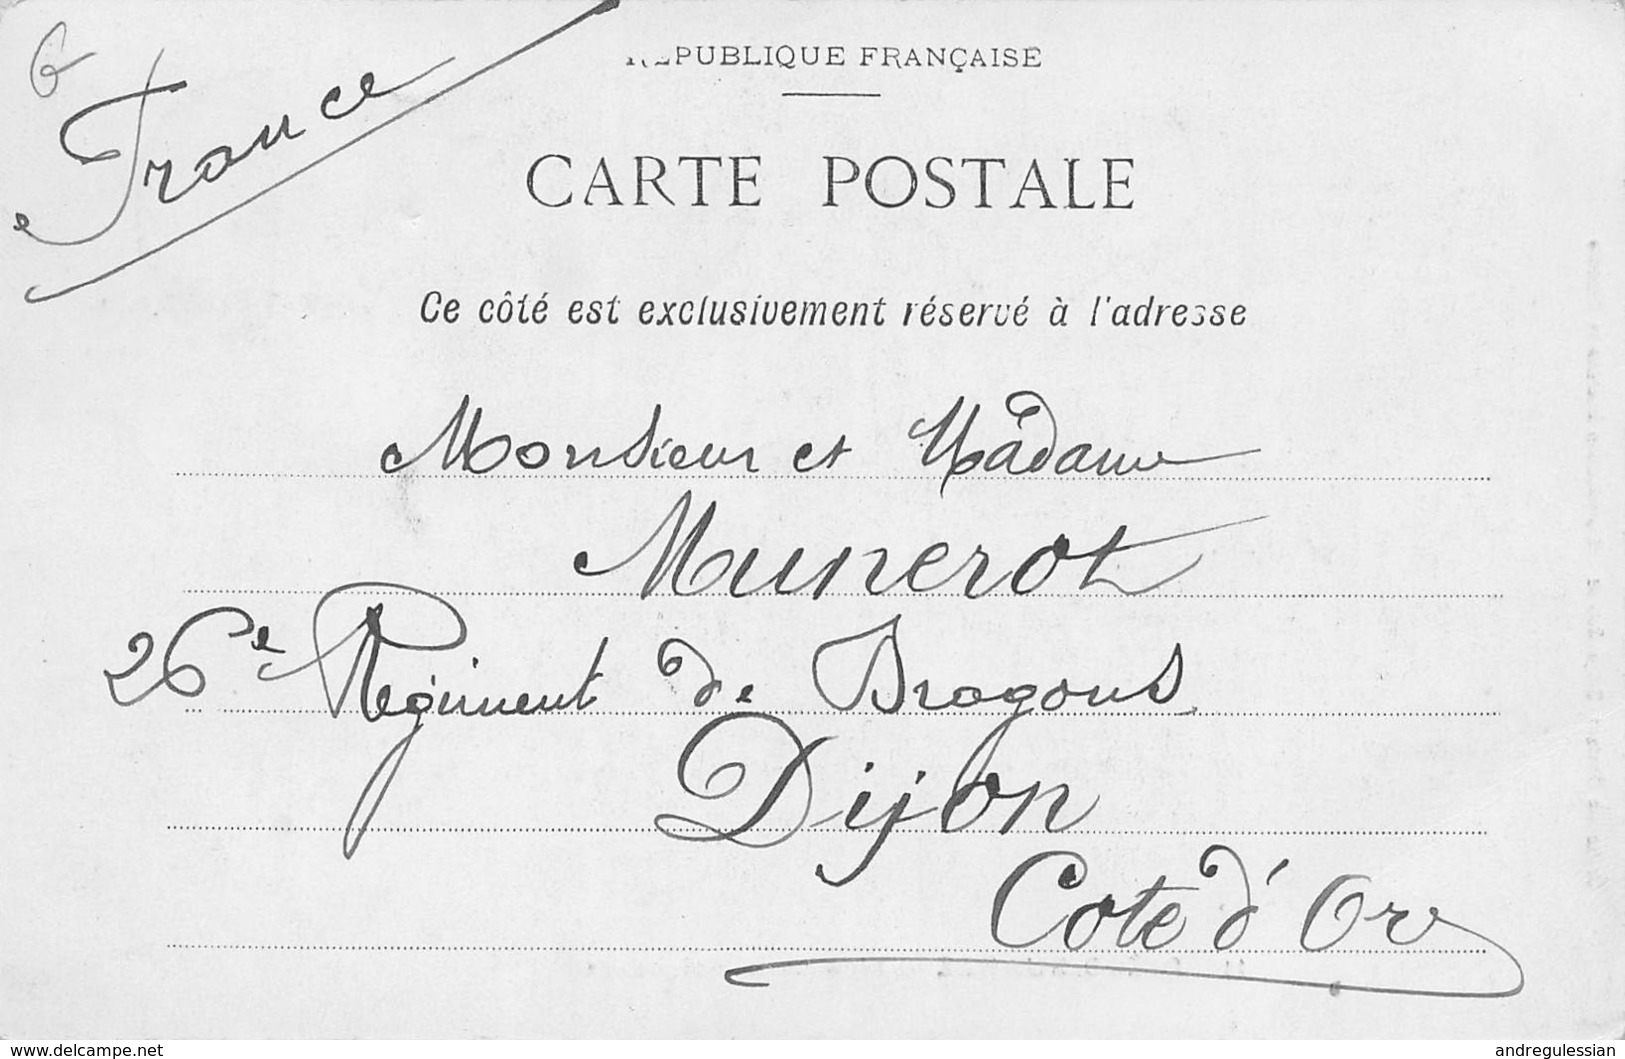 6
France
RÉPUBLIQUE FRANÇAISE
CARTE POSTALE
Ce côté est exclusivement réservé à l'adresse
Monsieur et Madame
Munerot
26e Régiment de Dragons
Dijon
Cote d'Or
www.delcampe.net
andregulessian